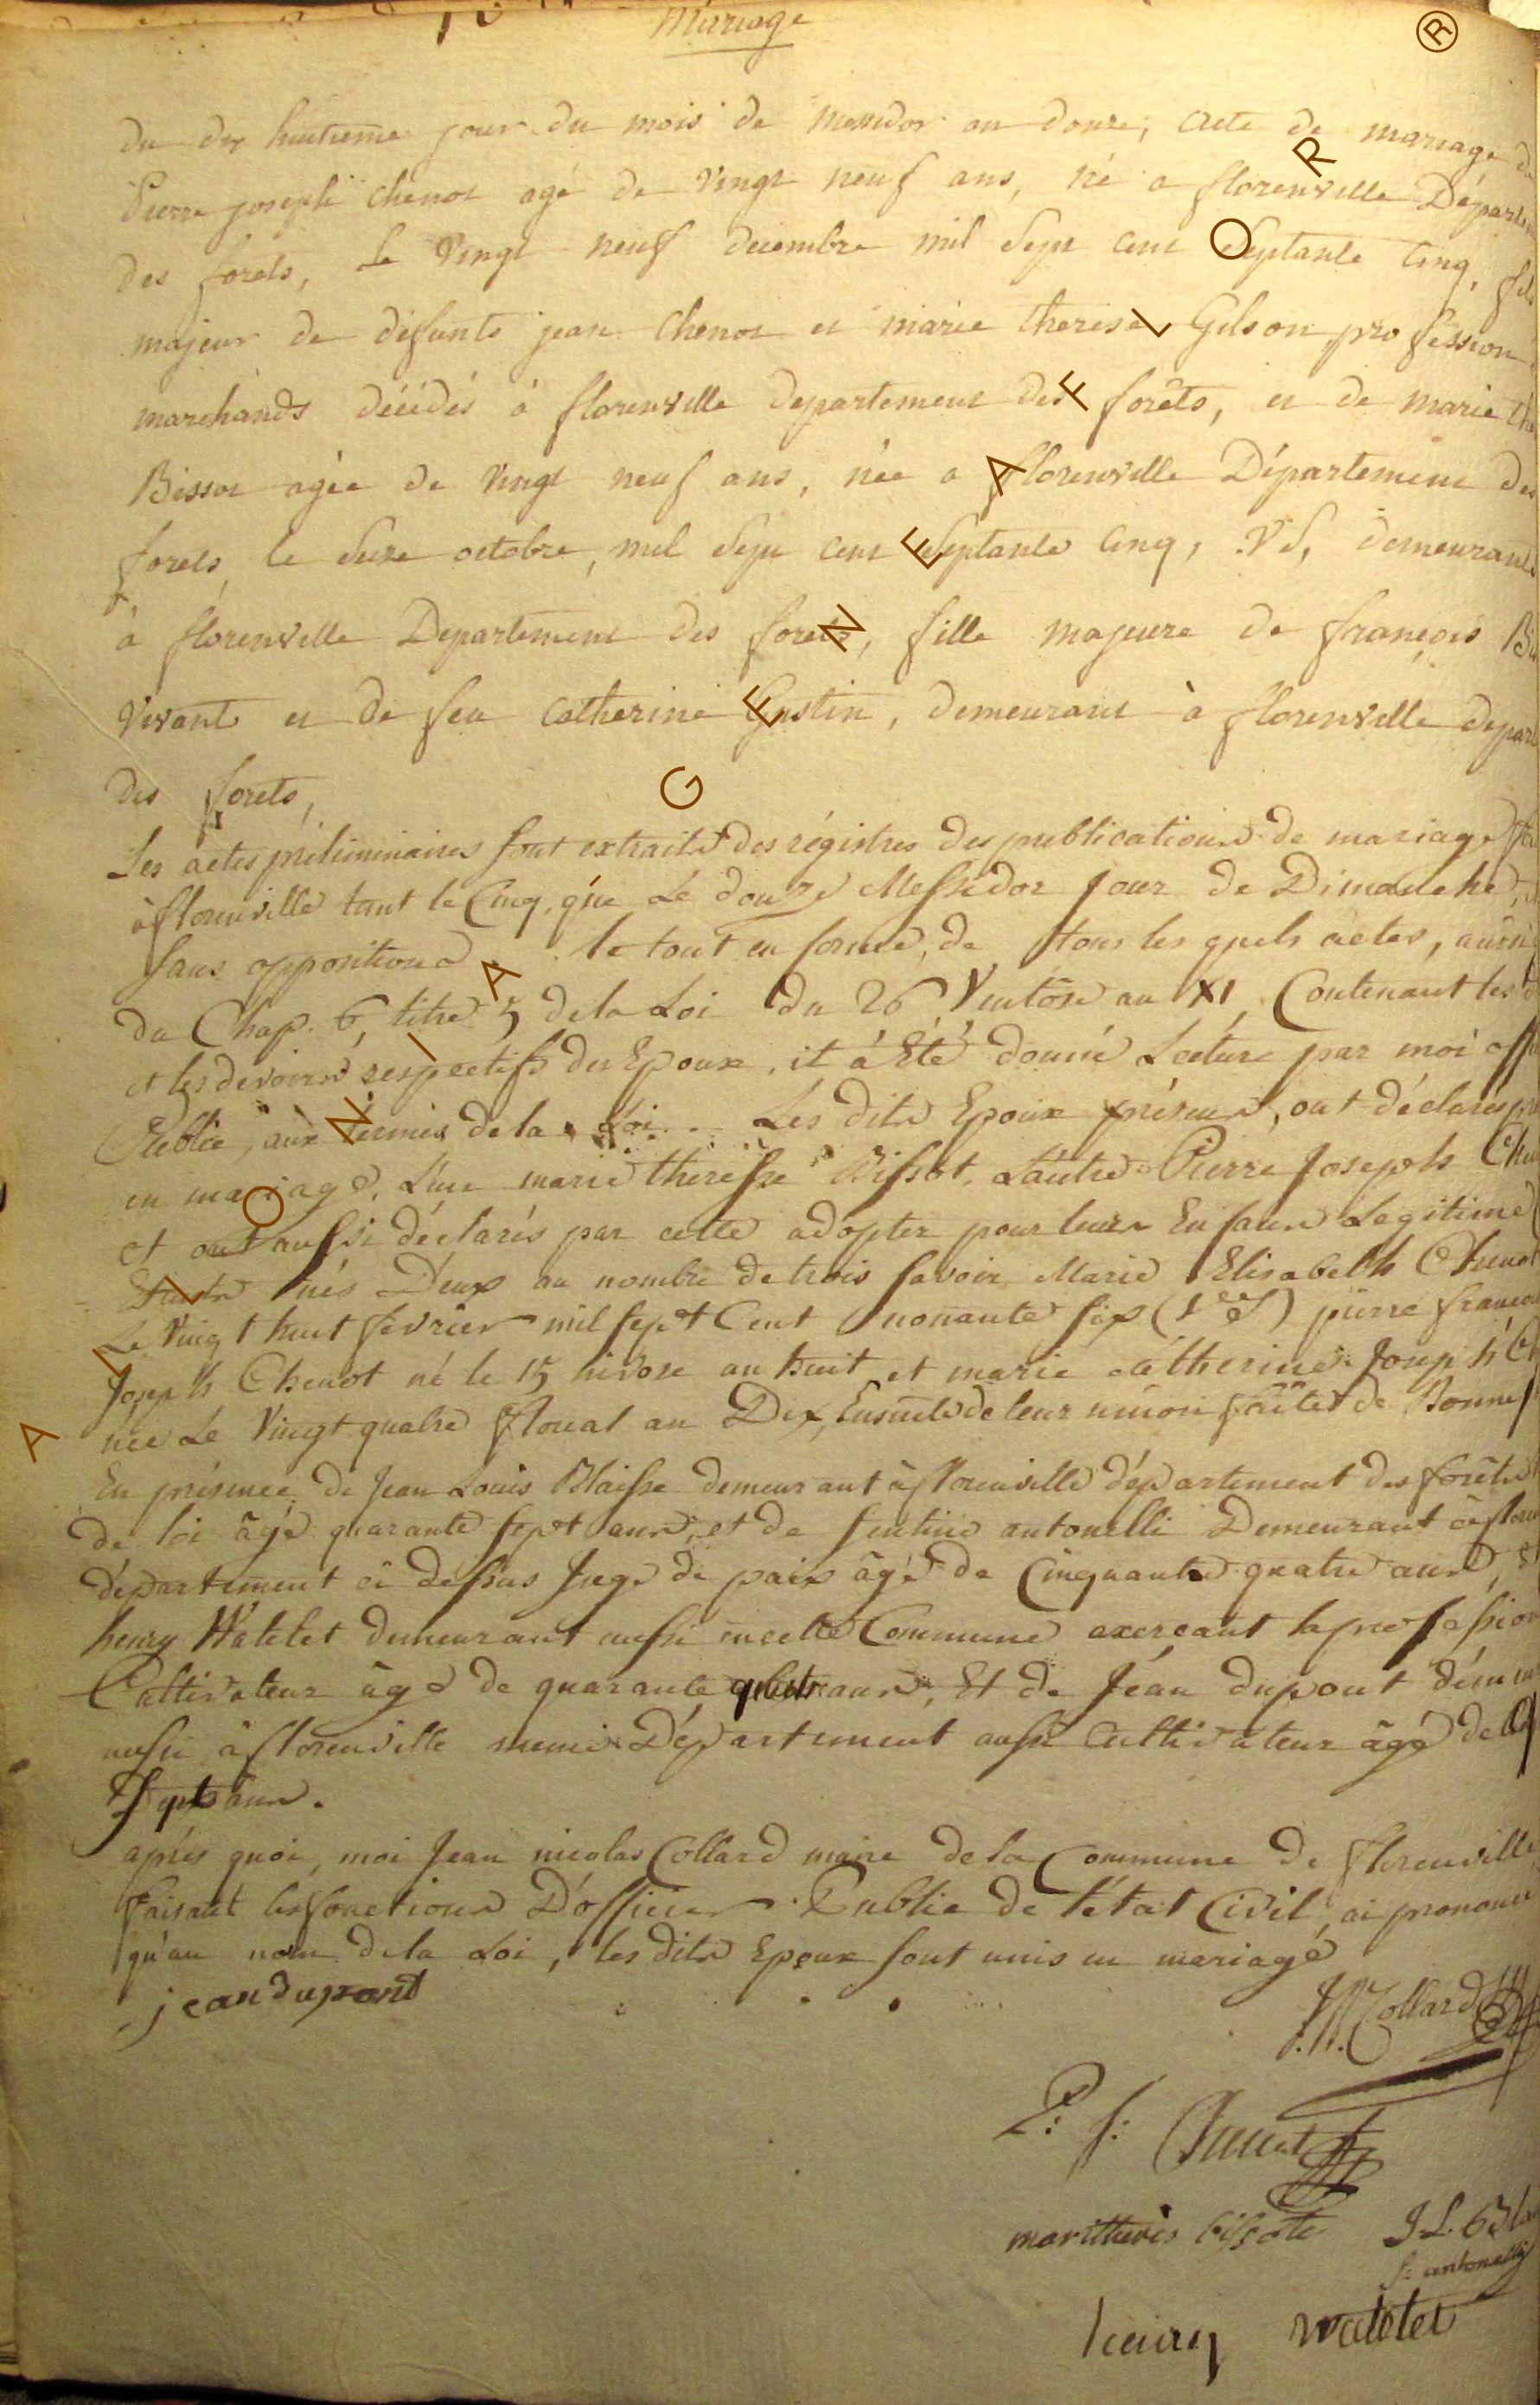 Mariage
du dix huitieme jour du mois de messidor an douze, acte de mariage de
Pierre joseph chenot agé de vingt neuf ans, né a florenville Départem
des forets, le vingt neuf decembre mil sept cent septante cinq, fils
majeur de défunts jean chenot et marie therese Gilson, profession
marchands décédés à florenville departement des forêts, et de marie the
Bissot agée de vingt neuf ans, née a florenville Département des
forets, le seize octobre, mil sept cent septante cinq, V.S, demeurante
à florenville Departement des forets, fille majeure de françois Bis
vivant et de feu catherine Gustin, demeurant à florenville depart
des forets,
Les actes préliminaires sont extraits des régistres des publications de mariage
à florenville tant le Cinq, que Le douze Messidor Jour de Dimanche,
sans oppositions le tout en forme, de tous les quels actes, aussi
du Chap. 6, titre 5 de la Loi du 26 Ventôse an XI, Contenant les d
et les devoirs respectifs des Epoux, it á Eté donné Lecture par moi offi
Public, aux termes de la Loi. Les dits Epoux présens, ont déclarés
en mariage, L'une marie theresse Bissot, L'autre Pierre Joseph Chen
et ont aussi déclarés par cette adopter pour leurs Enfans Legitime
nés D'eux au nombre de trois savoir Marie Elisabeth Chenot
Le Vingt huit février mil sept Cent nonante six (V S) pierre francoi
Joseph Chenot né le 15 nivose an huit et marie catherine Joseph Ch
née Le Vingt quatre floreal an Dix, Ensuite de leur union faite de Bonne f
En présence de Jean Louis Blaisse demeurant à florenville département des forêts
de loi âgé quarante sept ans, et de antonelli Demeurant à flore
département ci dessus Juge de paix âgé de Cinquante quatre ans,
henry Watelet demeurant aussi en cette Commune exercant la profession
Cultivateur âgé de quarante ans, Et de Jean dupont dém
aussi à florenville meme Département aussi Cultivateur âgé de q
Sept ans.
après quoi, moi Jean nicolas Collard maire de la Commune de florenville
faisant les fonctions D'officier Public de l'état Civil, ai prononcé
qu'au nom de la Loi, les dits Epoux sont unis en mariage
jean dupont
J.N. Collard
P: J: Chenot
marithereis bissote J L Blai
f: antonelli
henry watelet
ALLONIA GENEAFLOR ®